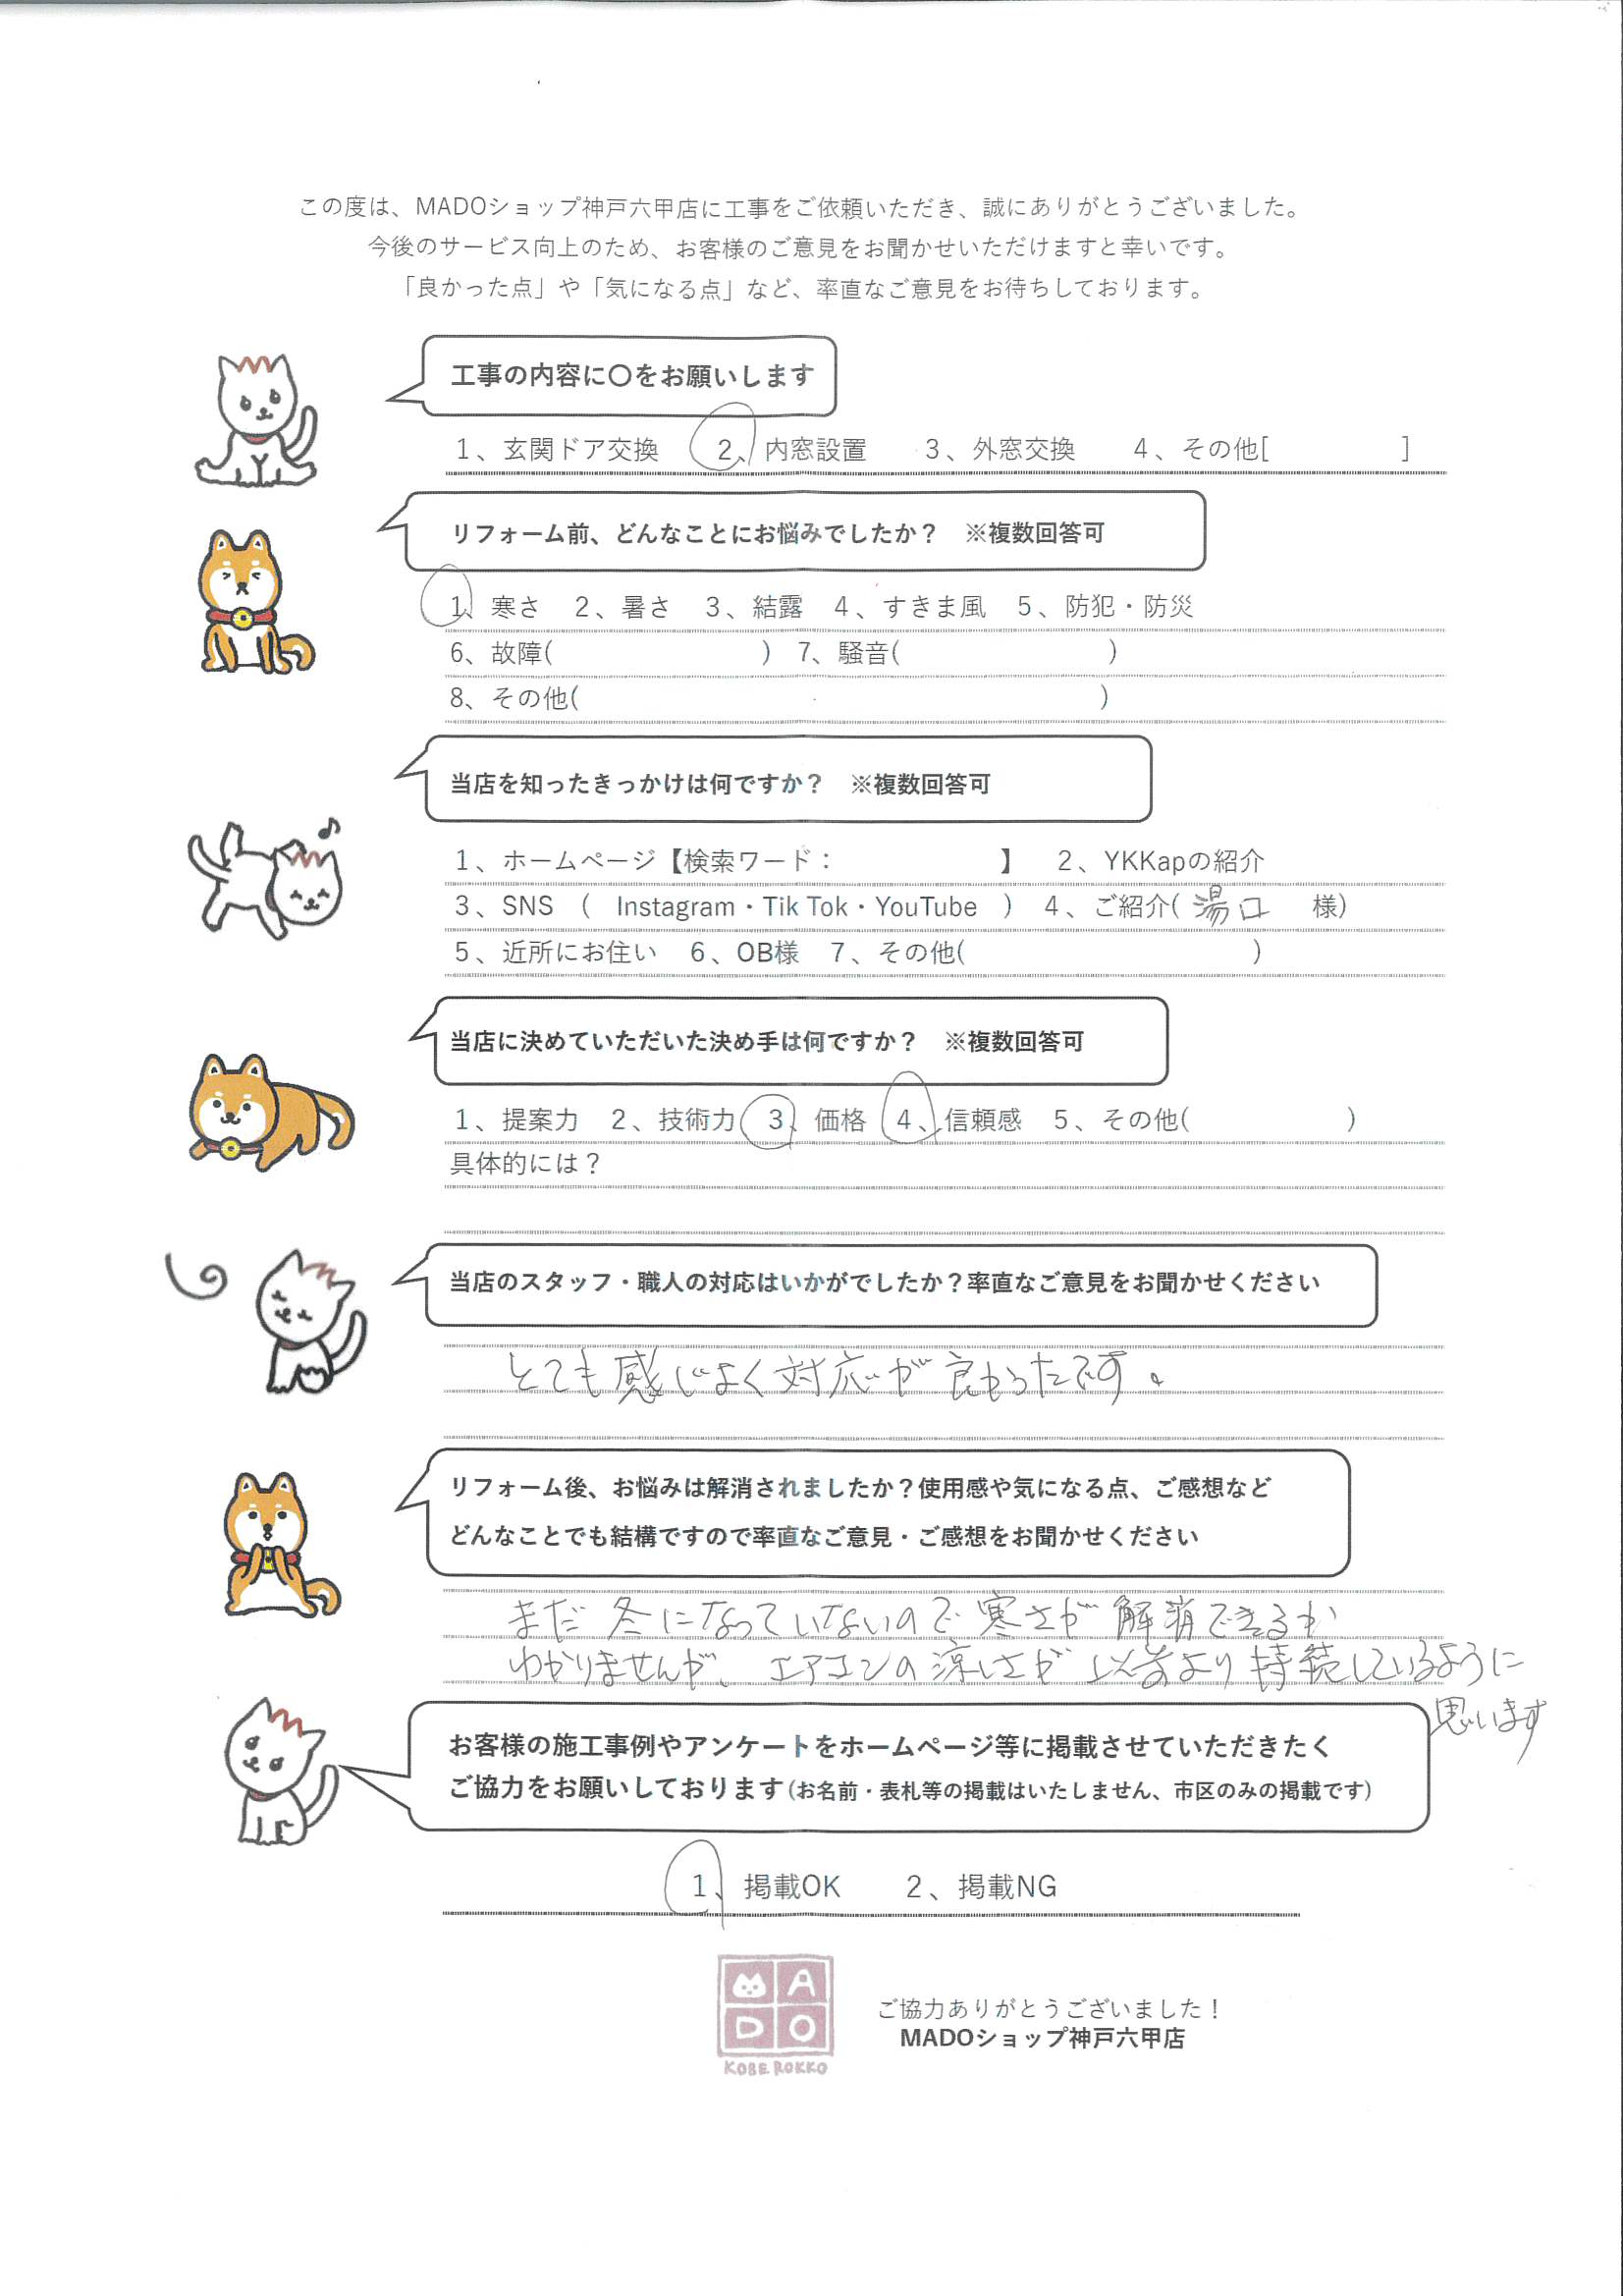 この度は、MADOショップ神戸六甲店に工事をご依頼いただき、誠にありがとうございました。
今後のサービス向上のため、お客様のご意見をお聞かせいただけますと幸いです。
「良かった点」や「気になる点」など、率直なご意見をお待ちしております。
工事の内容に〇をお願いします
1、玄関ドア交換　2、内窓設置　3、外窓交換　4、その他[　　　　]
リフォーム前、どんなことにお悩みでしたか？　※複数回答可
1、寒さ　2、暑さ　3、結露　4、すきま風　5、防犯・防災
6、故障(　　　　　　　)　7、騒音(　　　　　　　)
8、その他(　　　　　　　　　　　　　　　)
当店を知ったきっかけは何ですか？　※複数回答可
1、ホームページ【検索ワード：　　　　　　】　2、YKKapの紹介
3、SNS　(　Instagram・Tik Tok・YouTube　)　4、ご紹介( 湯口　様)
5、近所にお住い　6、OB様　7、その他(　　　　　　　　　)
当店に決めていただいた決め手は何ですか？　※複数回答可
1、提案力　2、技術力　3、価格　4、信頼感　5、その他(　　　　　)
具体的には？
当店のスタッフ・職人の対応はいかがでしたか？率直なご意見をお聞かせください
とても感じよく対応が良かったです。
リフォーム後、お悩みは解消されましたか？使用感や気になる点、ご感想など
どんなことでも結構ですので率直なご意見・ご感想をお聞かせください
まだ冬になっていないので寒さが解消できるか
わかりませんが、エアコンの涼しさが以前より持続しているように
思います
お客様の施工事例やアンケートをホームページ等に掲載させていただきたく
ご協力をお願いしております(お名前・表札等の掲載はいたしません、市区のみの掲載です)
1、掲載OK　2、掲載NG
MADO
KOBE ROKKO
ご協力ありがとうございました！
MADOショップ神戸六甲店